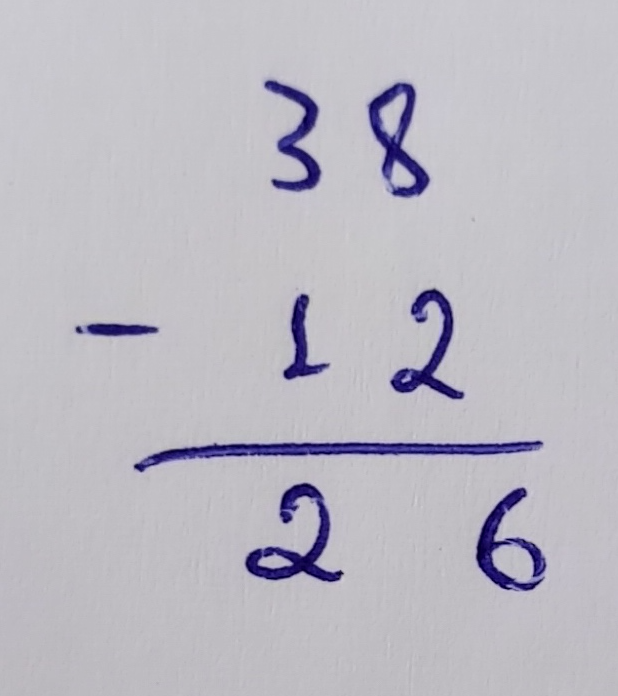 38
- 12
26